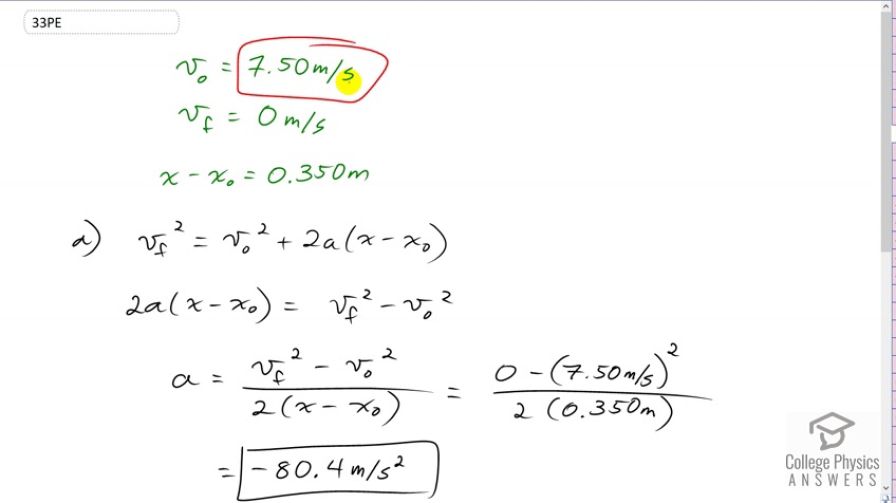 33PE
v₀ = 7.50 m/s
v_f = 0 m/s
x - x₀ = 0.350m
a) v_f² = v₀² + 2a(x - x₀)
2a(x - x₀) = v_f² - v₀²
a = (v_f² - v₀²) / 2(x - x₀) = 0 - (7.50m/s)² / 2(0.350m)
= -80.4 m/s²
College Physics
ANSWERS